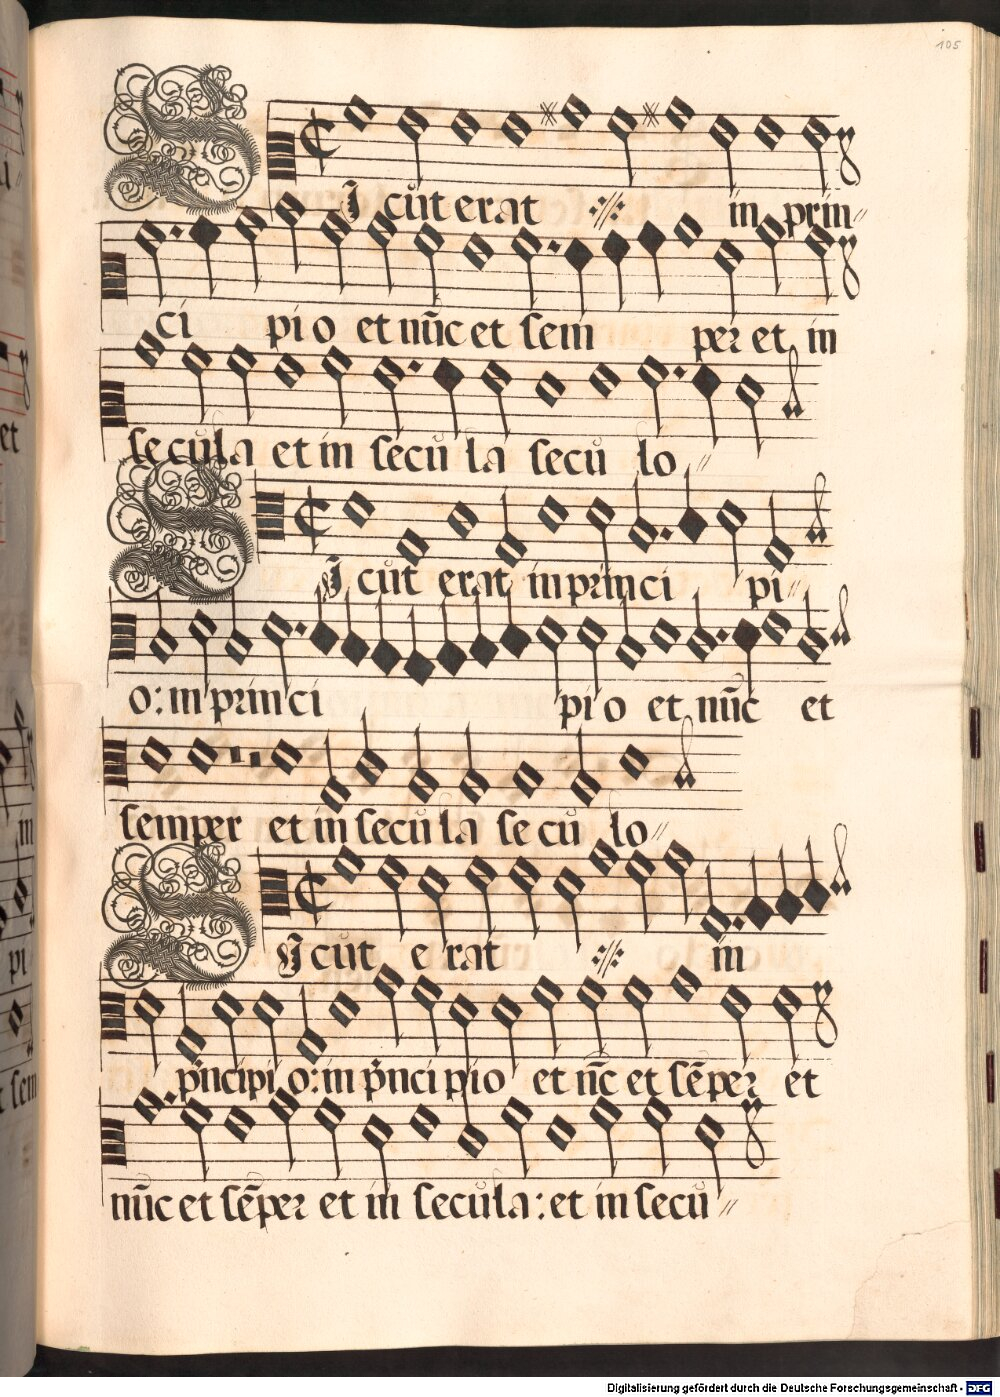 105
SIcut erat ·//· in prin//
ci pio et nūc et sem per et in
secula et in secu la secu lo //
SIcut erat in princi pi//
o: in princi pio et nūc et
semper et in secula secu lo//
SIcut erat ·//· in
p̄ncipi o: in p̄ncipio et nc̄ et sēper et
nūc et sēper et in secula: et in secu //
et
in
pi
t sem
Digitalisierung gefördert durch die Deutsche Forschungsgemeinschaft - DFG